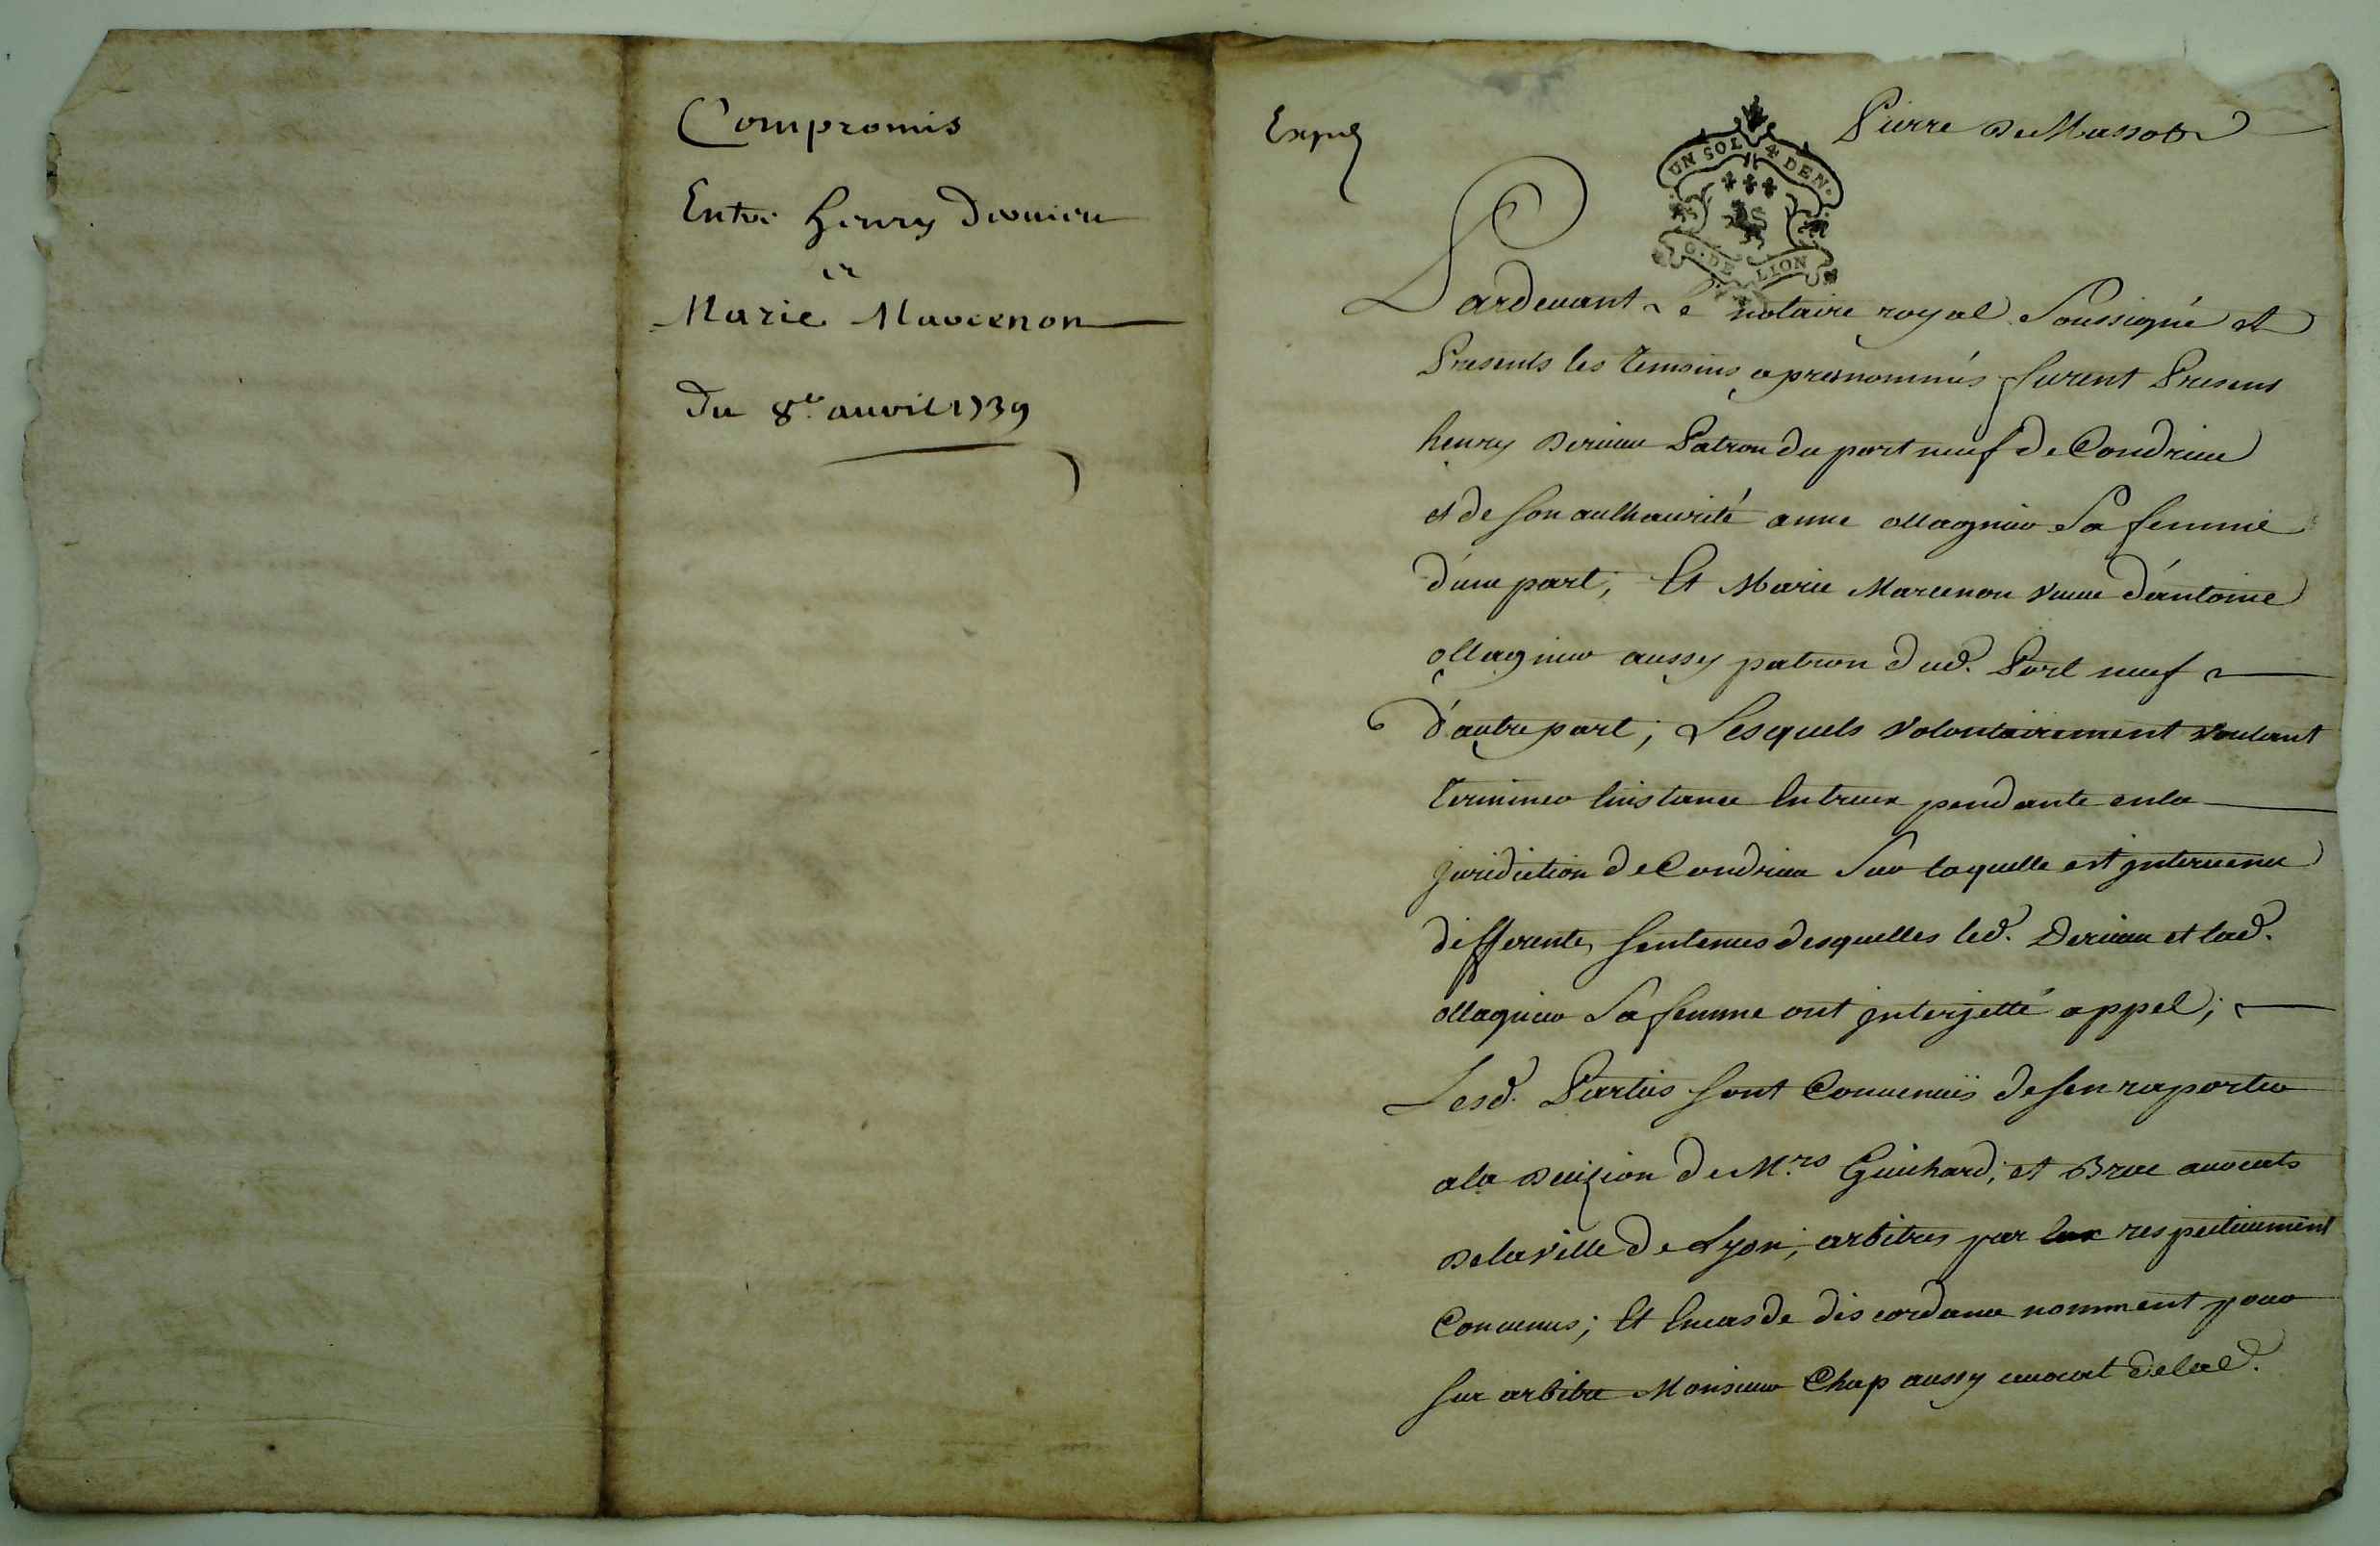 Compromis
Entre henry Devuieu
et
Marie Marcenon
Du 8e. auril 1739
Expé
Pierre De Massot
UN SOL 4 DEN.
G. DE LION
Pardeuant le notaire royal Soussigné et
Presents les temoins apresnommés furent Presens
henry Deruieu Patron du port neuf de Condrieu
et de son authaurité anne ollagnier Sa femme
d'une part, Et Marie Marcenon veuue d'antoine
ollagnier aussy patron dud. Port neuf
d'autre part; Lesquels volontairement voulant
terminer linstance Entreux pendante enla
juridiction de Condrieu Sur laquelle est jnteruenu
differentes sentences desquelles led. Deruieu et lad.
ollagnier Sa femme ont jnterjetté appel;
Lesd. Parties sont Conuenues desen raporter
ala Decision de Mrs Guichard; et Brac auocats
Dela ville de Lyon; arbitres par Eux respectiuement
Conuenus; Et Encas de discordance nomment pour
sur arbitre Monsieur Chap aussy auocat delad.